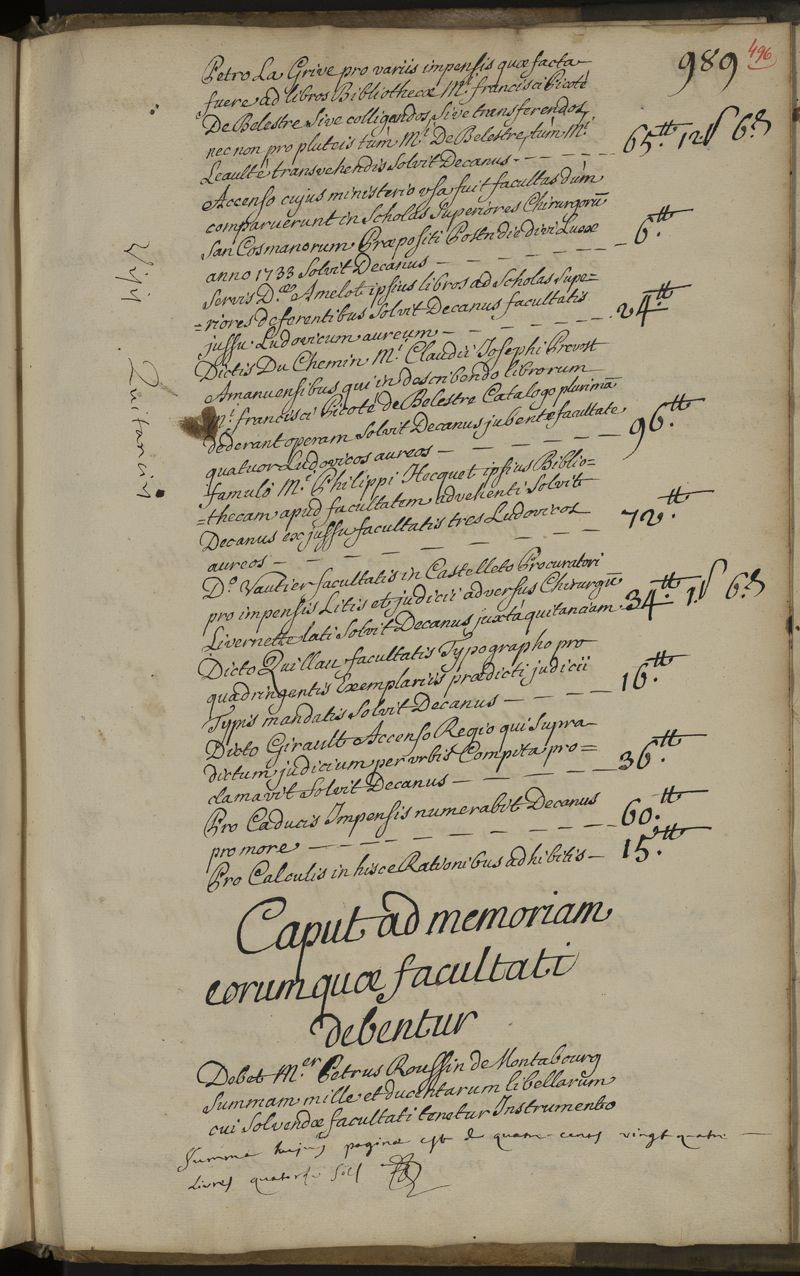 989 496
Petro La Grive pro variis impensis quæ facta
fuere ad libros Bibliothecæ M.i francisci Picoté
De Belestre Sive colligendos, Sive transferendos,
nec non pro pluteis tùm M.i De Belestre, tùm M.i
Leaulté transvehendis Solvit Decanus - - - - - 65.tt 12ſ 6.d
Accenso cujus ministerio usa fuit facultas dùm
comparuerunt in Scholas Superiores Chirurgorū
San Cosmanorum Præpositi Postridie divi Lucæ
anno 1733 Solvit Decanus - - - - - 6.tt
Servis D.æ Amelot ipsius libros ad Scholas Supe=
=riores deferentibus Solvit Decanus facultatis
jussu Ludovicum aureum - - - - - 24.tt
Dictis Du Chemin M.i Claudii Josephi Prevost
Amanuensibus qui in describendo librorum
M.i francisci Picoté de Belestre Catalogo plurimā
dederant operam Solvit Decanus jubente facultate
quatuor Ludovicos aureos - - - - - 96.tt
famulo M.i Philippi Hecquet ipsius Biblio=
=thecam apud facultatem advehenti Solvit
Decanus ex jussu facultatis tres Ludovicos
aureos - - - - - 72.tt
D.o Vautier facultatis in Castelleto Procuratori
pro impensis Litis et judicii adversus Chirurgū
Livernette lati Solvit Decanus juxta quitanciam 34.tt 1.ſ 6.d
Dicto Quillau facultatis Typographo pro
quadringentis Exemplariis prædicti judicii
Typis mandatis Solvit Decanus - - - - 16.tt
Dicto Girault Accenso Regio qui Supra
dictum judicium per urbis Compita pro=
clamavit Solvit Decanus - - - - - 36.tt
Pro Caducis Impensis numerabit Decanus
pro more - - - - - 60.tt
Pro Calculis in hisce Rationibus adhibitis - 15.tt
Visis Quitanciis
Caput ad memoriam
eorum quæ facultati
debentur
Debet M.er Petrus Roussin de Montabourg
Summam mille et ducentarum libellarum
cui Solvendæ facultati tenetur Instrumento
Summa hujus paginæ est de quatre cents vingt quatre
Livres quatorze sols